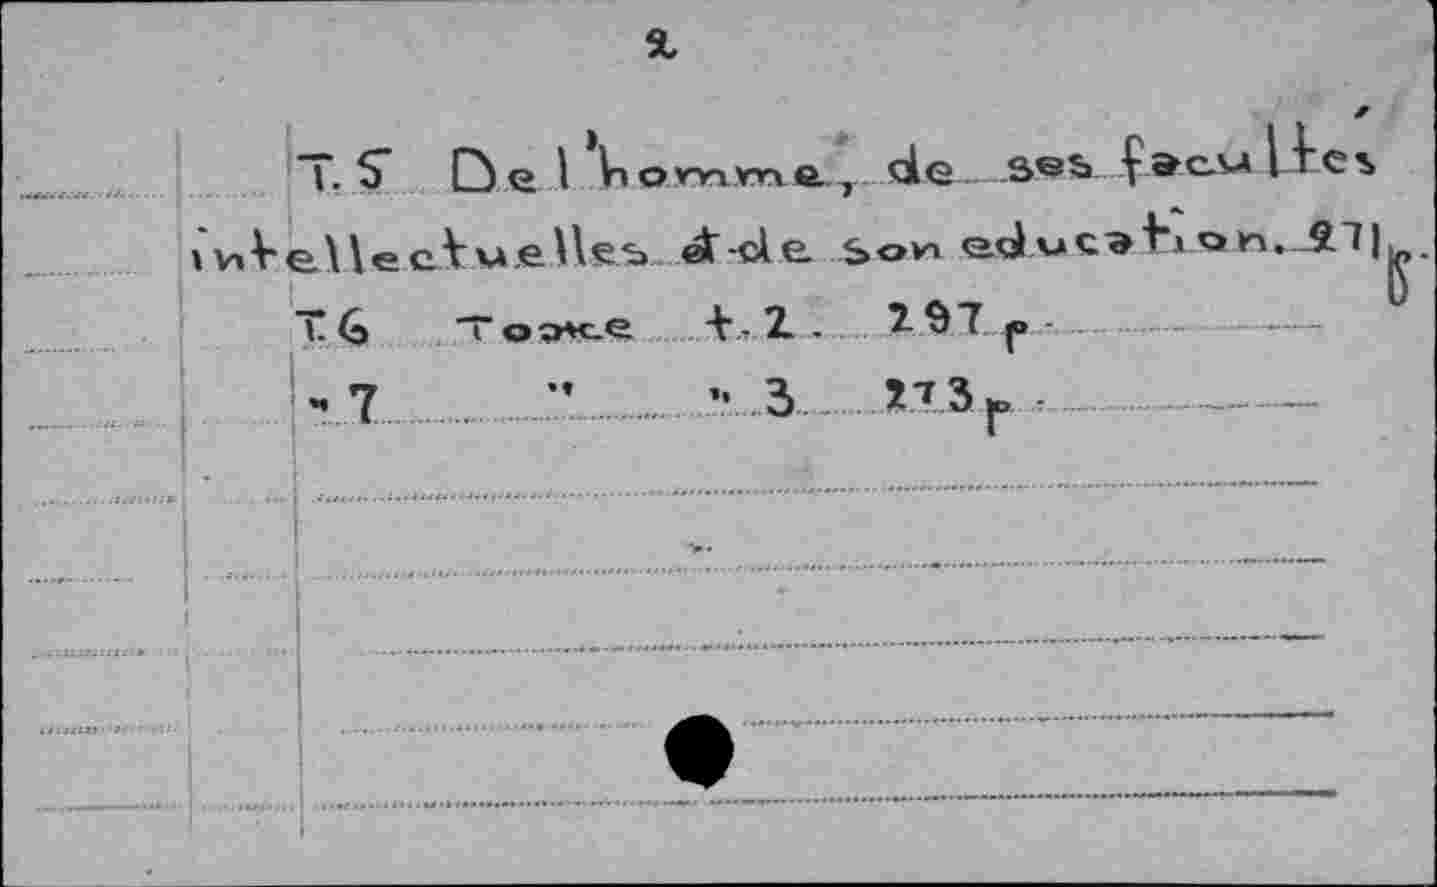 2
T. 5 De l'homme, de ses facultés
intellectuelles et de son education. 271 p.
T. 6 Тоже t. 2. 297 p.
" 7 " " 3 273 p.